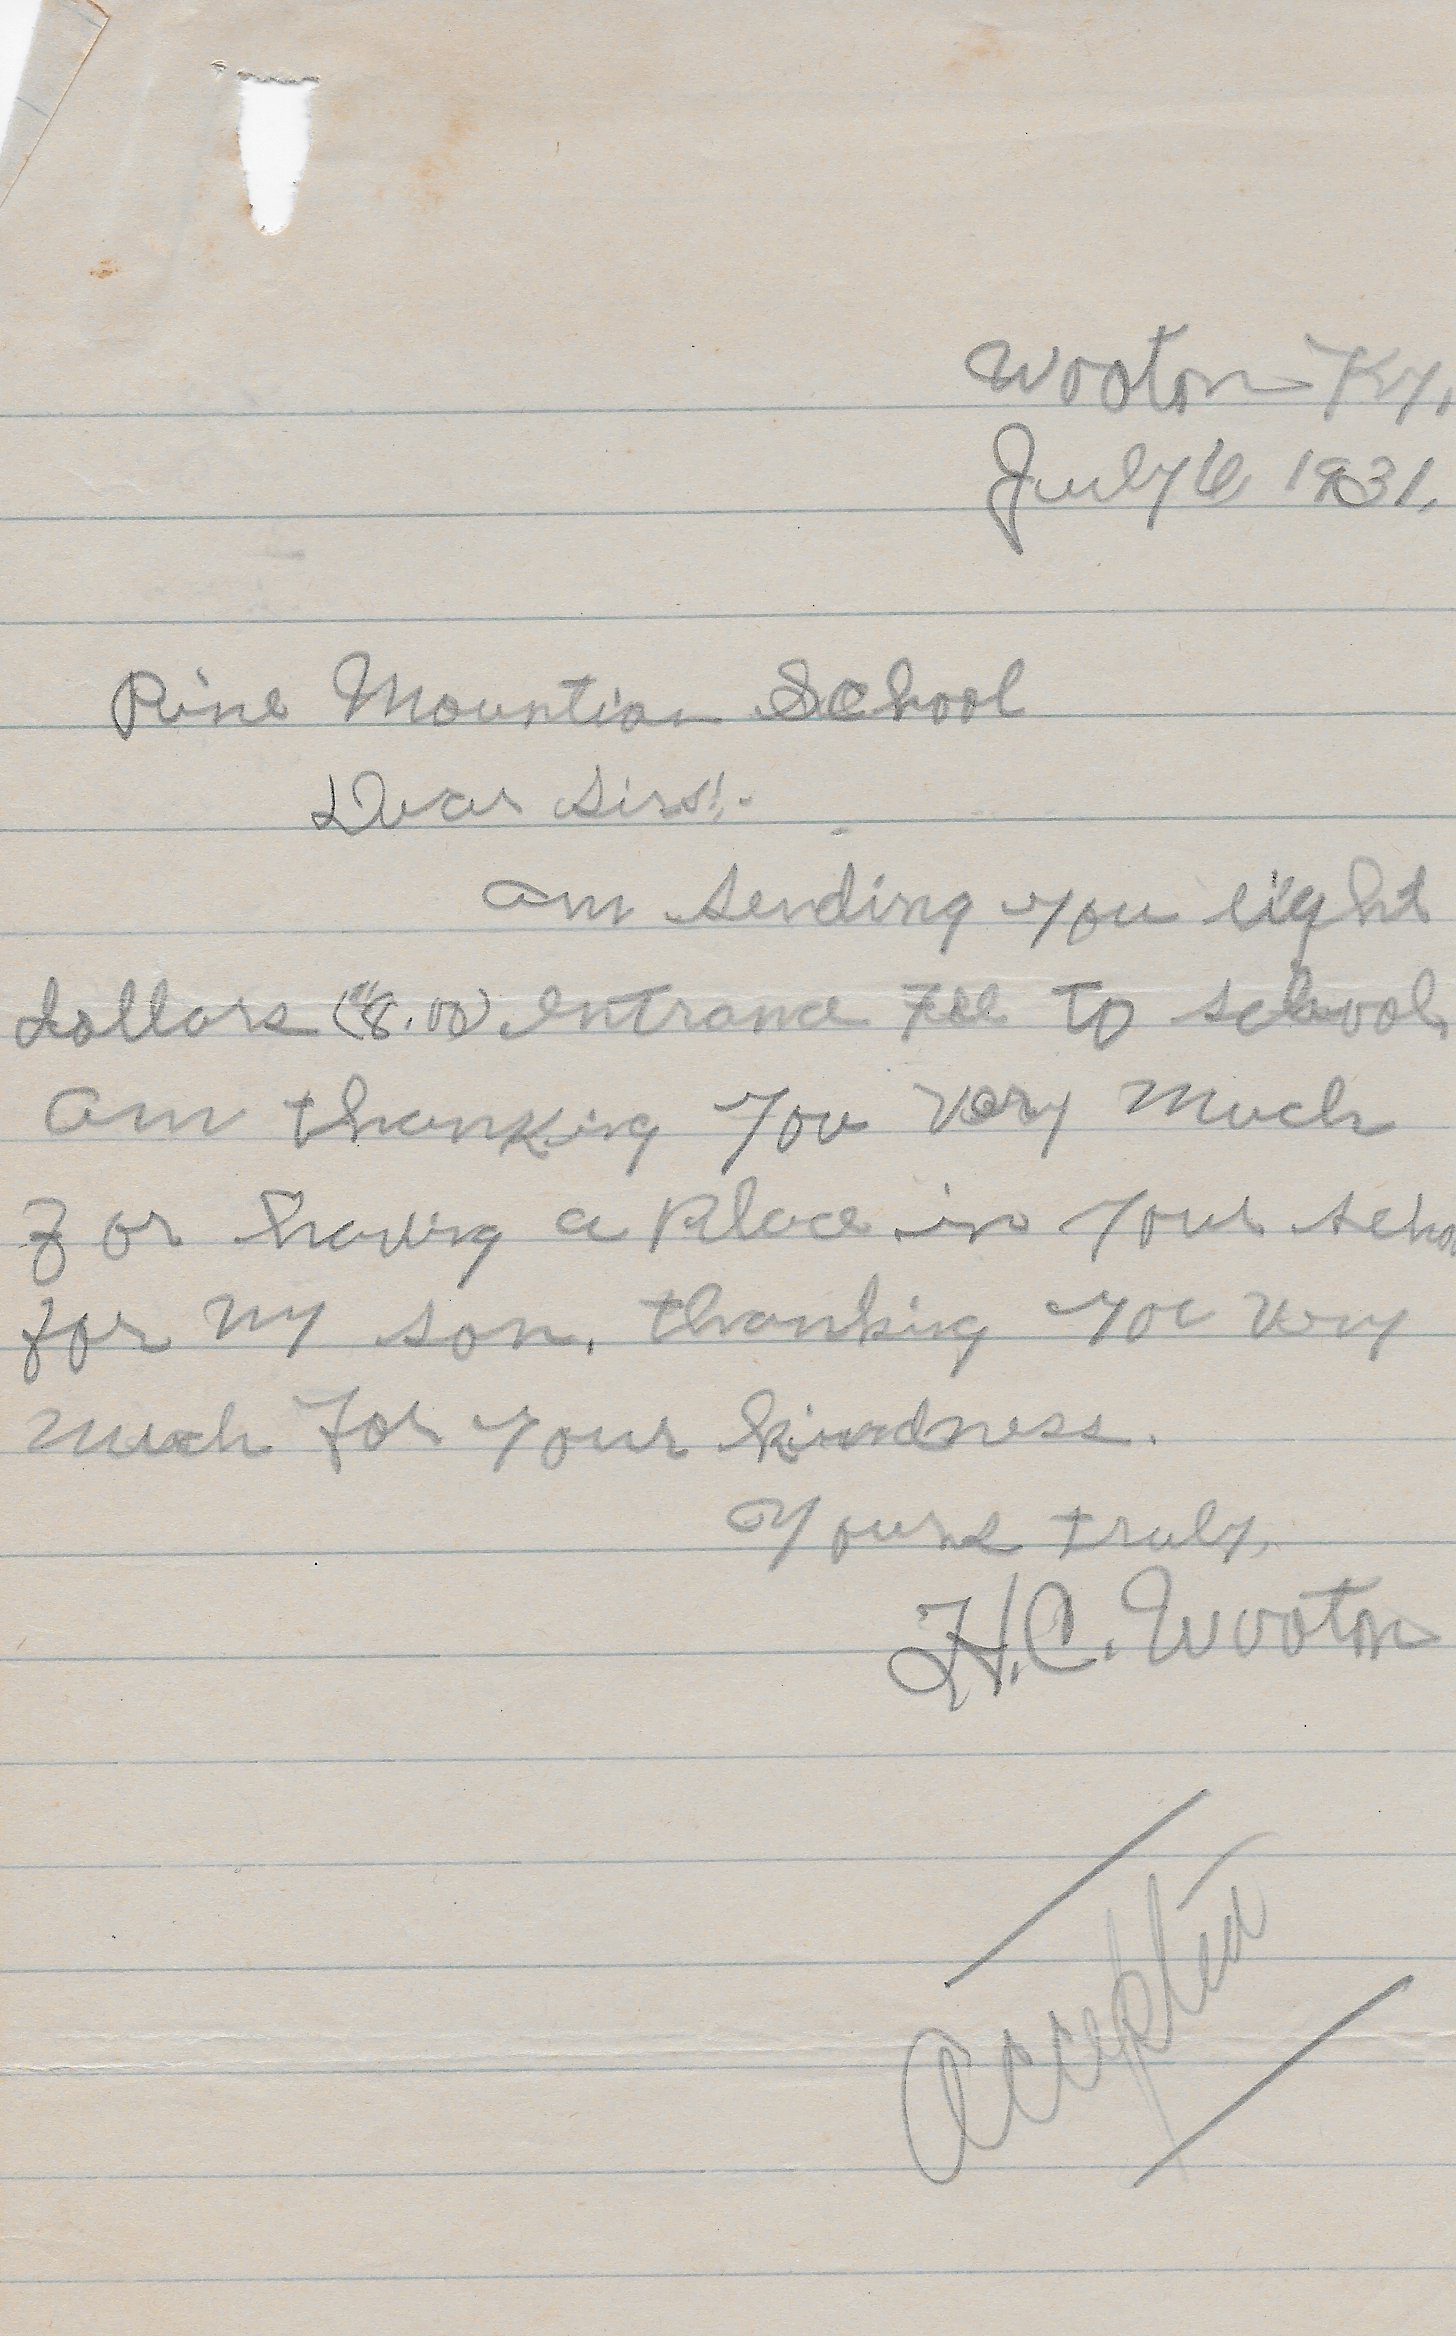 Wooton Ky,
July 6, 1931,
Pine Mountian School
Dear Sirs:-
am sending you eight
dollars ($8.00) Entrance Fee to school,
am thanking you very much
for having a place in your schoo
for my son. thanking you very
much for your kindness.
Yours truly,
H.C. Wooton
Accepted